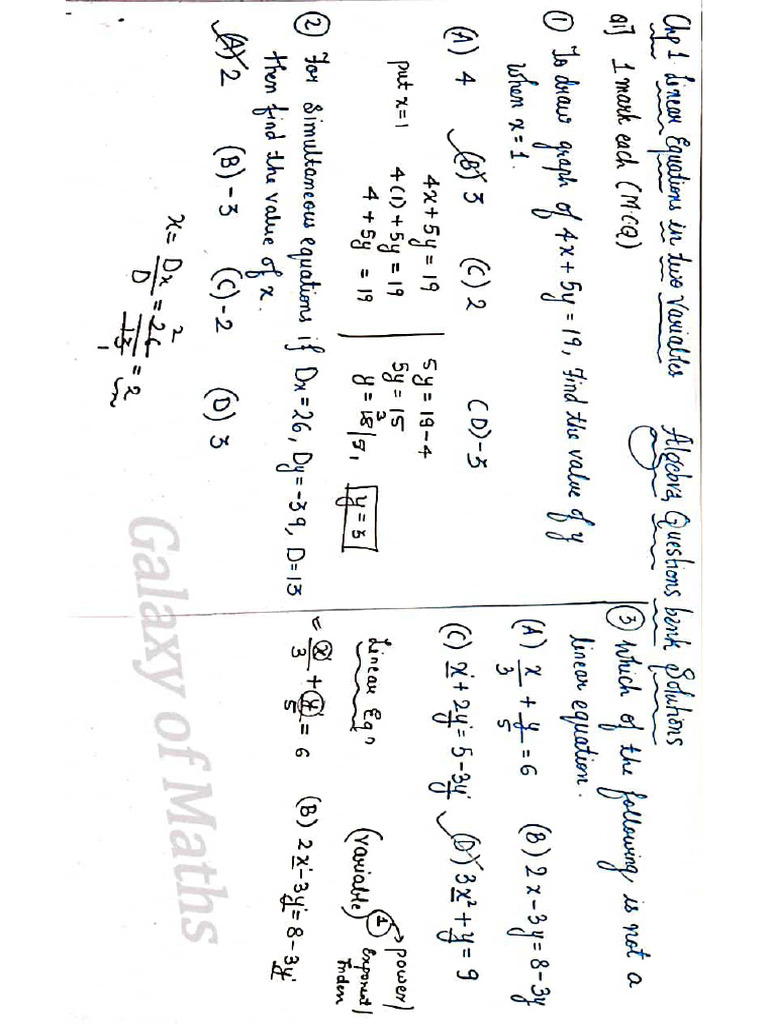 Chp 1. Linear Equations in two Variables Algebra Questions bank Solutions
Q1] 1 mark each (M.C.Q)
① To draw graph of 4x + 5y = 19, find the value of y
when x = 1.
(A) 4 (B) 3 (C) 2 (D) -3
4x + 5y = 19
put x = 1 4(1) + 5y = 19
4 + 5y = 19
5y = 19 - 4
5y = 15
y = 15/5, 3
y = 3
② For simultaneous equations if Dx = 26, Dy = -39, D = 13
then find the value of x.
(A) 2 (B) -3 (C) -2 (D) 3
x = Dx/D = 26/13 = 2
2
1
③ Which of the following, is not a
linear equation.
(A) x/3 + y/5 = 6 (B) 2x - 3y = 8 - 3y
(C) x + 2y = 5 - 3y (D) 3x² + y = 9
Linear Eqⁿ (Variable)① → power/
exponent/
Index
= x/3 + y/5 = 6 (B) 2x - 3y = 8 - 3y
Galaxy of Maths